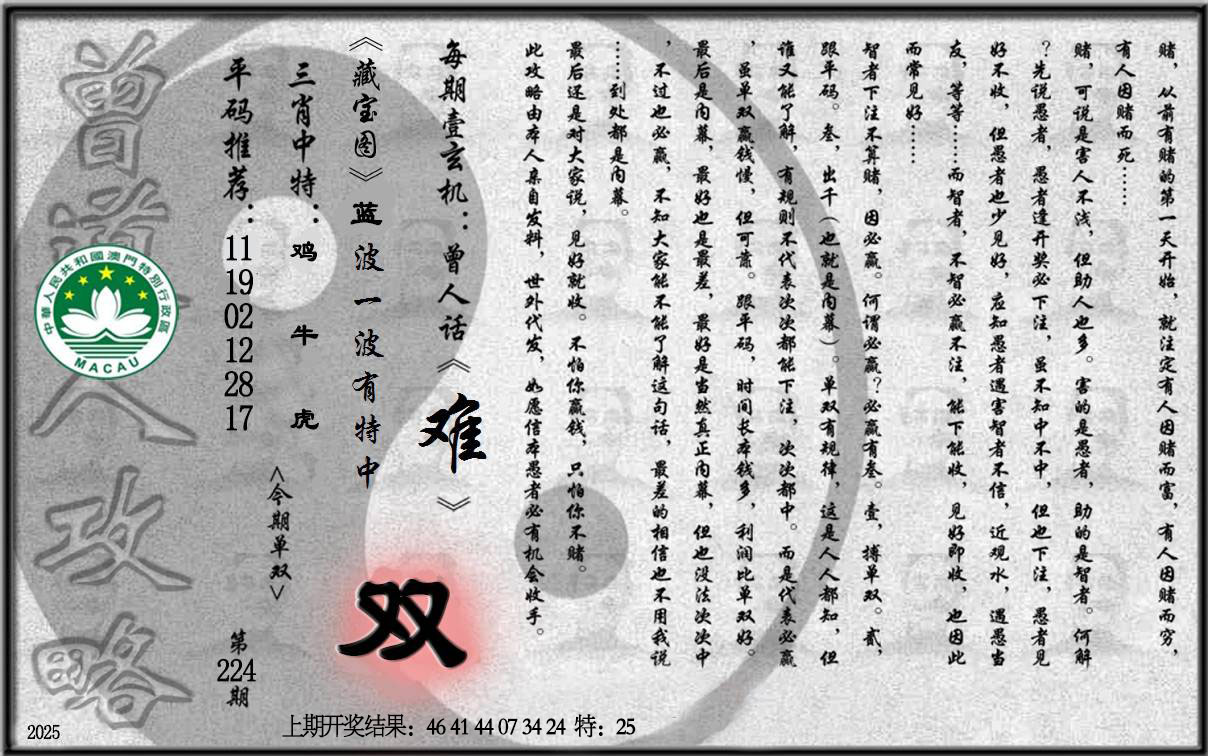 赌，从前有赌的第一天开始，就注定有人因赌而富，有人因赌而穷，
有人因赌而死……
赌，可说是害人不浅，但助人也多。害的是愚者，助的是智者。何解
？先说愚者，愚者逢开奖必下注，虽不知中不中，但也下注，愚者见
好不收，但愚者也少见好，应知愚者遇害智者不信，近观水，遇愚当
友，等等……而智者，不智必赢不注，能下能收，见好即收，也因此
而常见好……
智者下注不算赌，因必赢。何谓必赢？必赢有叁。壹，搏单双。贰，
跟平码。叁，出千（也就是内幕）。单双有规律，这是人人都知，但
谁又能了解，有规则不代表次次都能下注，次次都中。而是代表必赢
，虽单双赢钱慢，但可靠。跟平码，时间长本钱多，利润比单双好。
最后是内幕，最好也是最差，最好是当然真正内幕，但也没法次次中
，不过也必赢，不知大家能不能了解这句话，最差的相信也不用我说
……到处都是内幕。
最后还是对大家说，见好就收。不怕你赢钱，只怕你不赌。
此攻略由本人亲自发料，世外代发，如愿信本愚者必有机会收手。
每期壹玄机：曾人话《难》
《藏宝图》蓝波一波有特中
双
三肖中特：鸡 牛 虎
<今期单双>
平码推荐：11 19 02 12 28 17
第224期
曾道人攻略
中華人民共和國澳門特別行政區
MACAU
2025
上期开奖结果：46 41 44 07 34 24 特：25